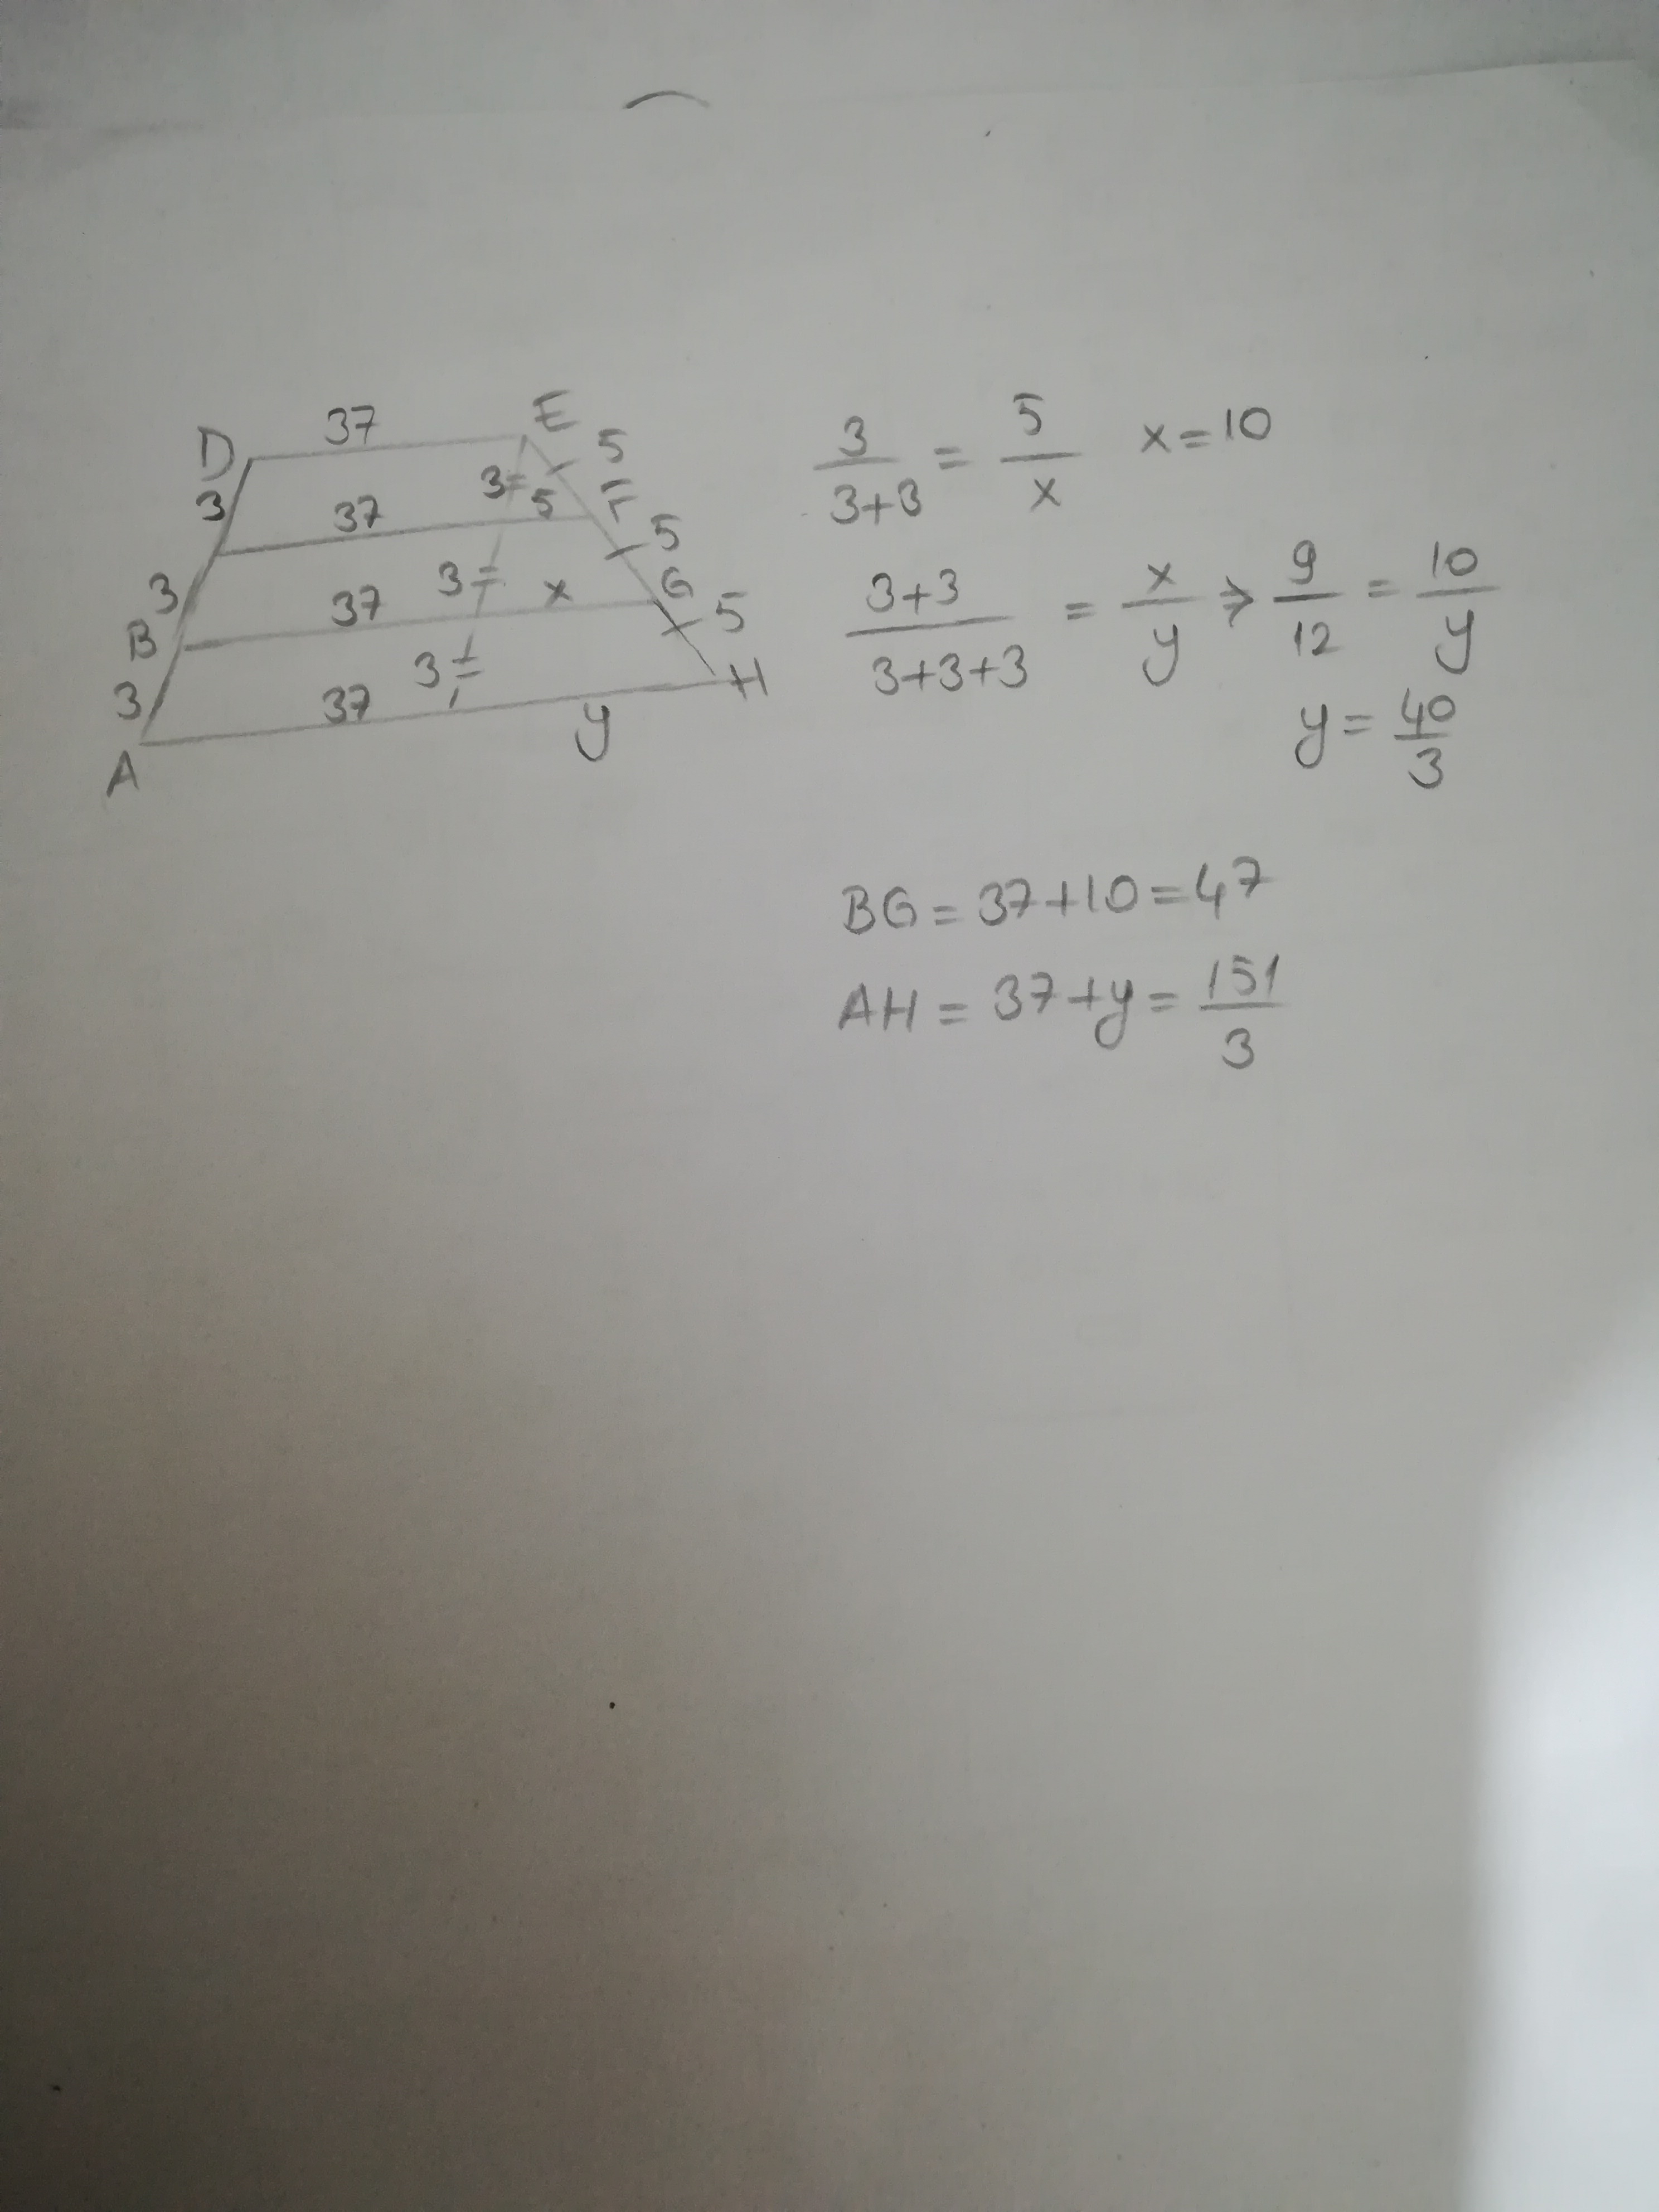 D 37 E
3 37 3 5 F 5
3 37 3 x G 5
B 5
3 37 3 y H
A
3/(3+3) = 5/x x=10
(3+3)/(3+3+3) = x/y ⇒ 9/12 = 10/y
y = 40/3
BG = 37+10 = 47
AH = 37+y = 151/3